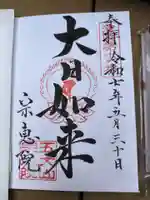 奉拝 令和七年五月三十日
大日如来
宗恵院